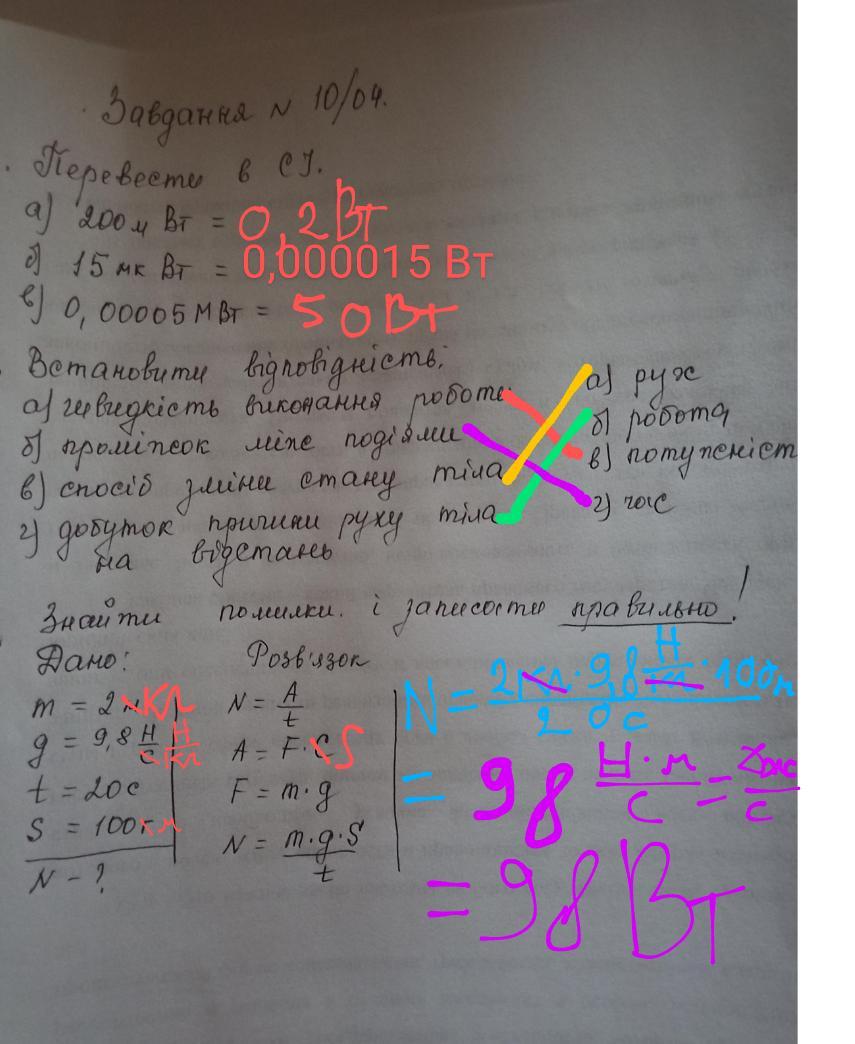 Завдання N 10/04.
Перевести в СІ.
а) 200м Вт = 0,2Вт
б) 15мк Вт = 0,000015 Вт
в) 0,00005МВт = 50Вт
Встановити відповідність:
а) швидкість виконання роботи
а) рух
б) проміжок між подіями
б) робота
в) спосіб зміни стану тіла
в) потужніст
г) добуток причини руху тіла
на відстань
г) час
Знайти помилки і записати правильно!
Дано:
Розв'язок
m = 2 кг
g = 9,8 Н/с Н/кг
t = 20с
S = 100к м
N - ?
N = A/t
A = F · t S
F = m · g
N = m·g·S/t
N = 2кг · 9,8 Н/кг · 100м / 20с
= 98 Н·м/с = Дж/с
= 98 Вт